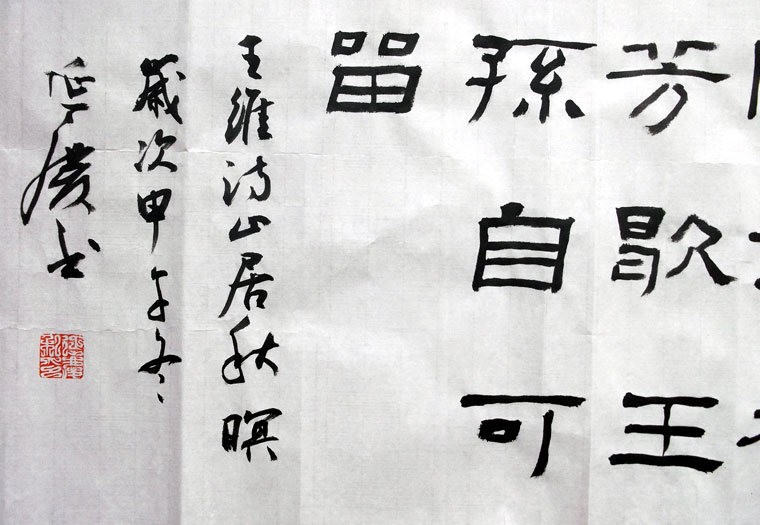 芳歇王
孫自可
留
王維詩山居秋暝
歲次甲午冬
书